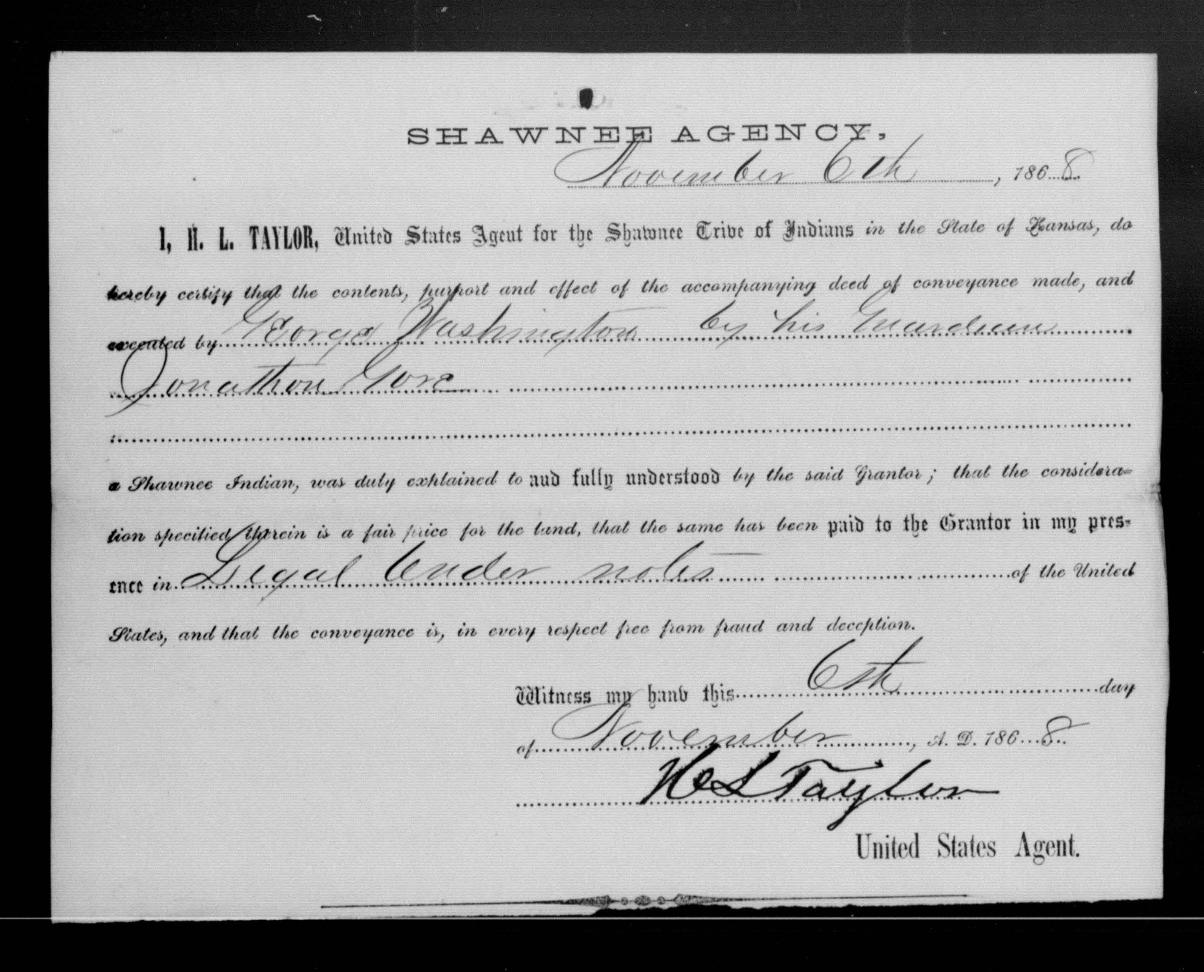 SHAWNEE AGENCY,
November 6th, 1868.
I, H. L. TAYLOR, United States Agent for the Shawnee Trive of Indians in the State of Kansas, do
hereby certify that the contents, purport and effect of the accompanying deed of conveyance made, and
executed by George Washington by his Guardian
Jonathon Gore
a Shawnee Indian, was duly explained to and fully understood by the said Grantor; that the considera=
tion specified therein is a fair price for the land, that the same has been paid to the Grantor in my pres=
ence in Legal tender notes of the United
States, and that the conveyance is, in every respect free from fraud and deception.
Witness my hand this 6th day
of November, A. D. 1868.
H L Taylor
United States Agent.